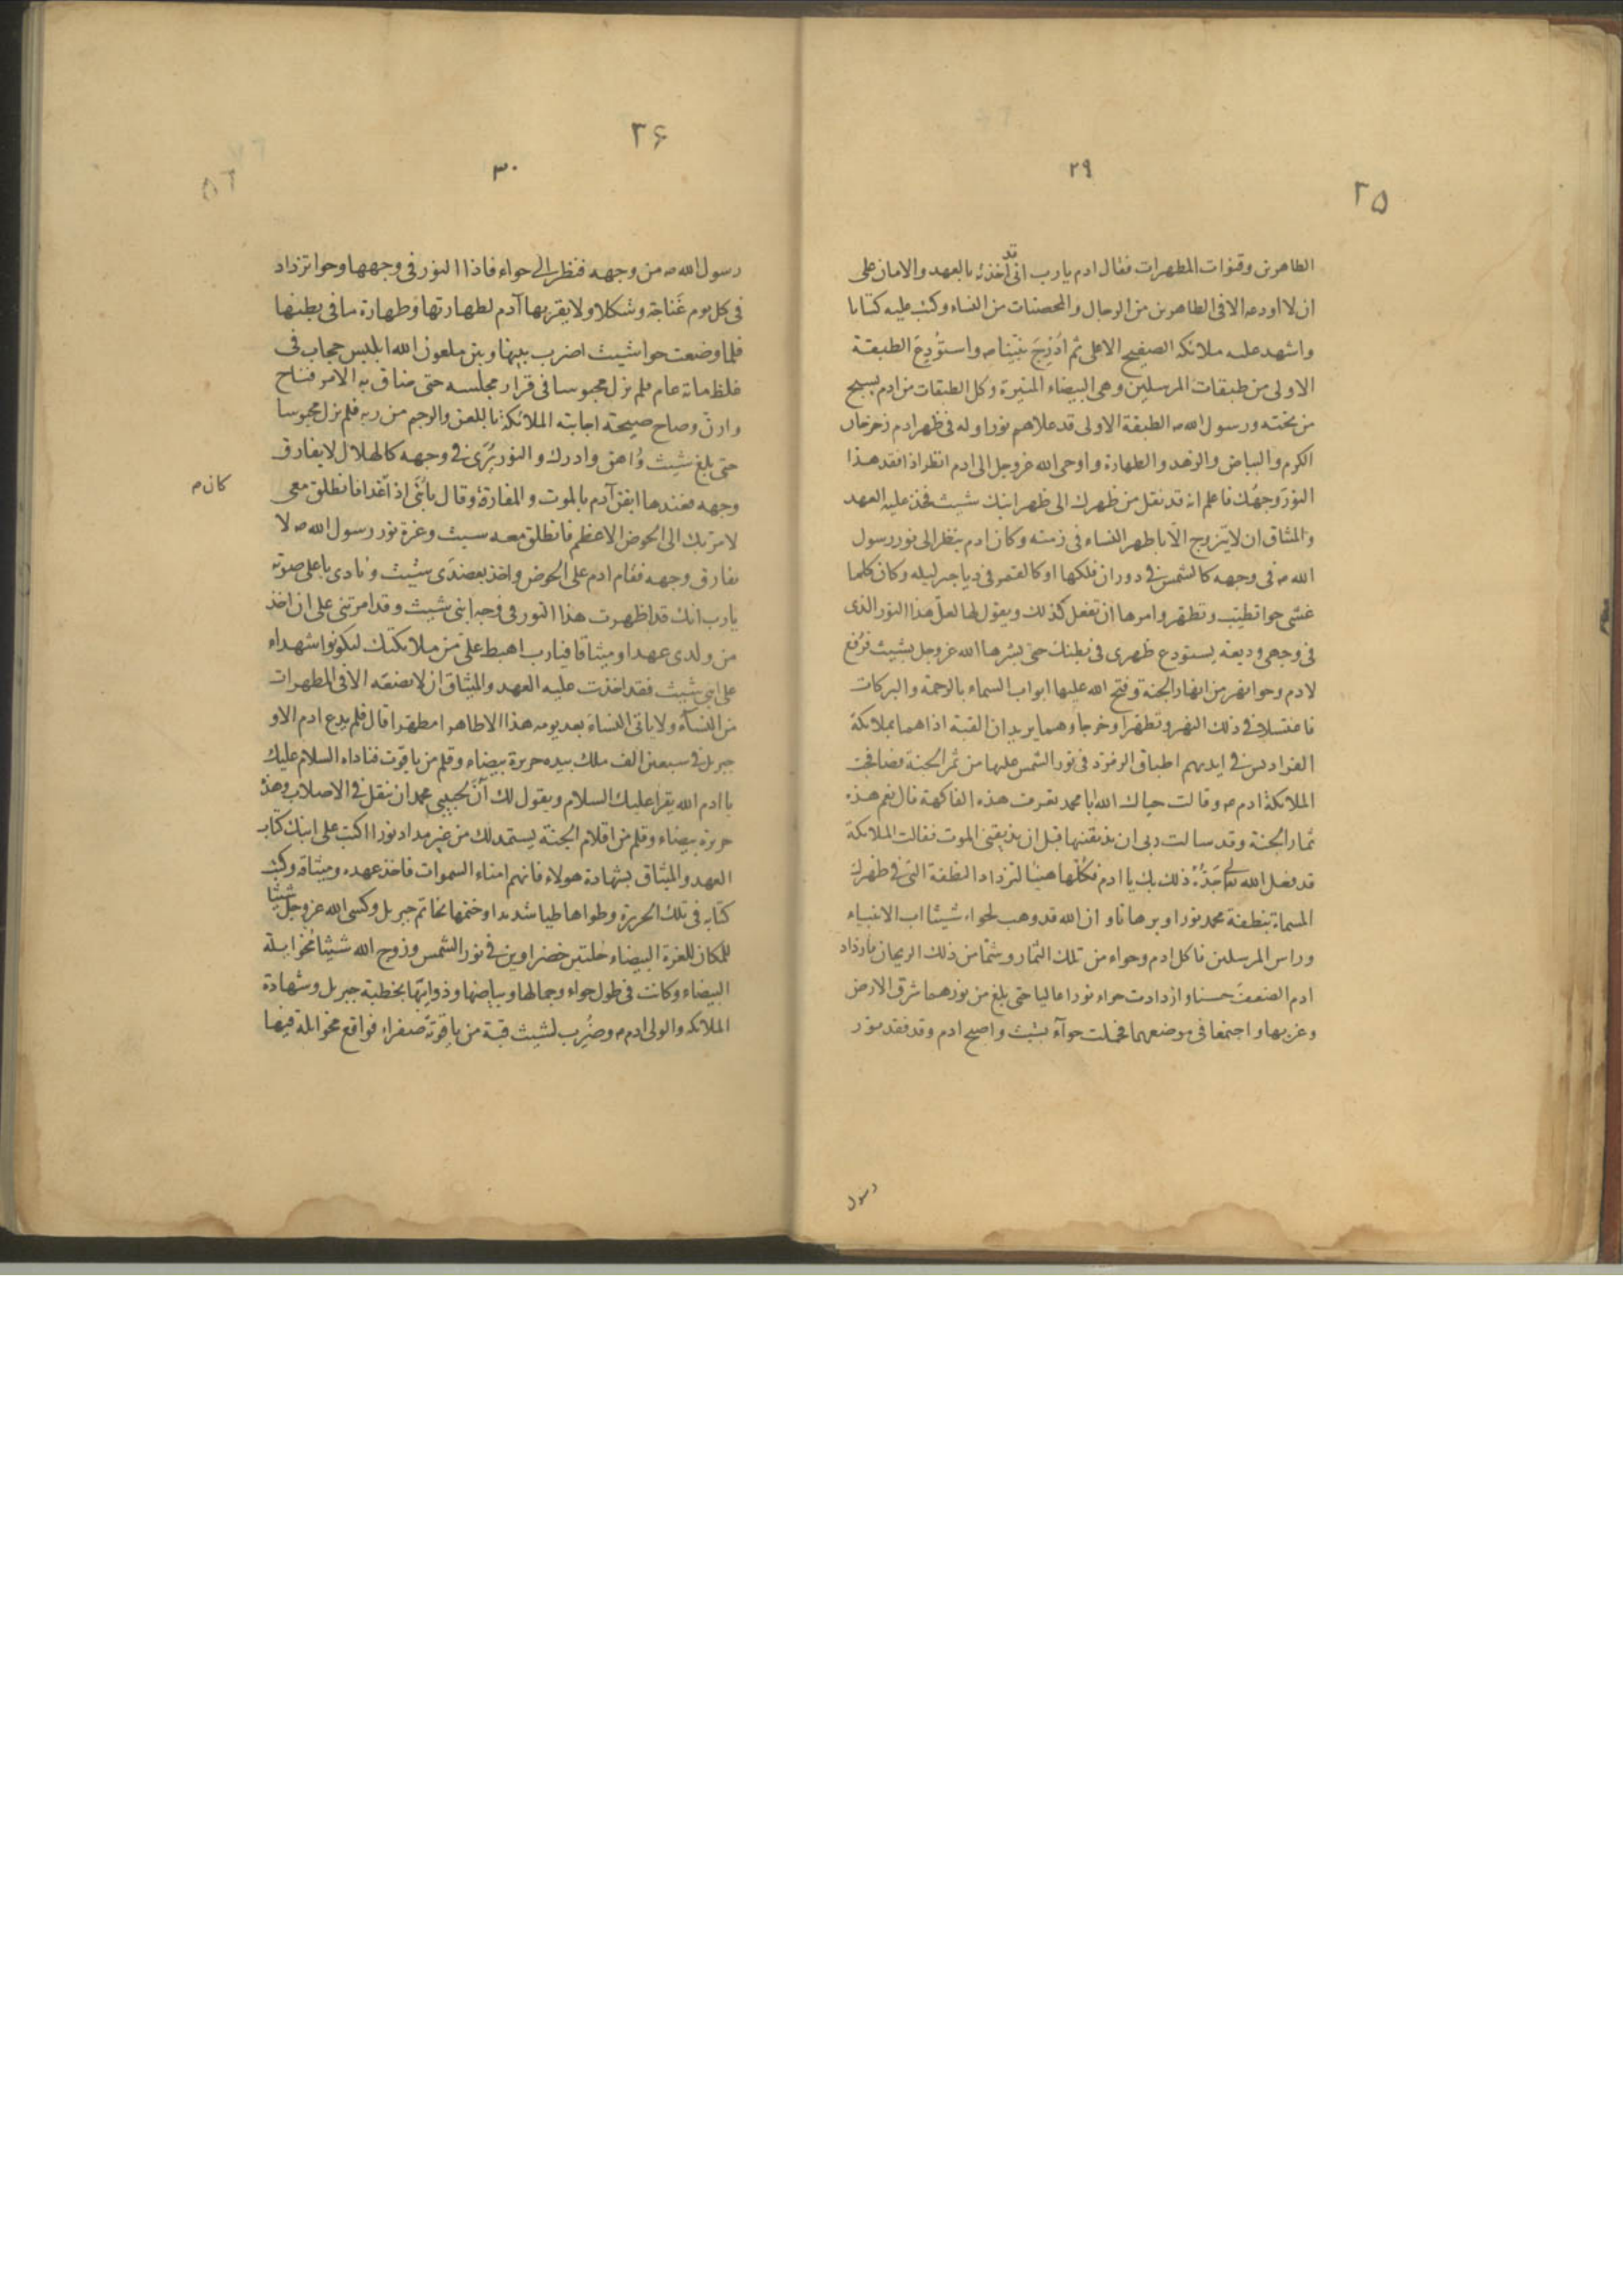 ٢٥
٢٩
الطاهرين وقنوات المطهرات فقال ادم يا رب انى قد اخذته بالعهد والامان على
ان لا اودعه الا فى الطاهرين من الرجال والمحصنات من النساء وكتب عليه كتابا
واشهد عليه ملائكه الصفيح الاعلى ثم ادرج نبينا ص واستودع الطبقة
الاولى من طبقات المرسلين وهى البيضاء المنيرة وكل الطبقات من ادم يسبح
من تحته ورسول الله ص الطبقة الاولى قد علاهم نورا وله فى ظهر ادم زخرخان
الكرم والبياض والزهد والطهارة واوحى الله عز وجل الى ادم انظر اذا فقد هذا
النور وجهك فاعلم انه قد نقل من ظهرك الى ظهر ابنك شيث فخذ عليه العهد
والمثاق ان لا يتزوج الا باطهر النساء فى زمنه وكان ادم ينظر الى نور رسول
الله ص فى وجهه كالشمس فى دوران فلكها او كالقمر فى دياجير ليله وكان كلما
غشى حوا تطيب وتطهر وامرها ان تفعل كذلك ويقول لها لعل هذا النور الذى
فى وجهى وديعة يستودع ظهرى فى بطنك حتى بشرها الله عز وجل بشيث فرفع
لادم وحوا نهر من انهار الجنة وفتح الله عليها ابواب السماء بالرحمة والبركات
فاغتسلا فى ذلك النهر وتطهرا وخرجا وهما يريدان القبة اذا هما بملائكة
الفراديس فى ايديهم اطباق الزمرد فى نور الشمس عليها من ثمر الجنة فصافحت
الملائكة ادم ص وقالت حياك الله ابا محمد تعرف هذه الفاكهة قال نعم هذه
ثمار الجنة وقد سالت ربى ان يذيقنيها قبل ان يذيقنى الموت فقالت الملائكة
قد فعل الله تعالى جده ذلك بك يا ادم فكلها هنيئا لتزداد النطفة التى فى ظهرك
المسماة بنطفة محمد نورا وبرهانا وان الله قد وهب لحواء شيثا اب الانبياء
وراس المرسلين فاكل ادم وحواء من تلك الثمار وشما من ذلك الريحان فازداد
ادم الضعف حسنا وازدادت حواء نورا عاليا حتى بلغ من نورهما شرق الارض
وغربها واجتمعا فى موضعهما فحملت حوآء بشيث واصبح ادم وقد فقد نور
رسول
٢۶
٣٠
رسول الله ص من وجهه فنظر الى حواء فاذا النور فى وجهها وحوا تزداد
فى كل يوم غناجة وشكلا ولا يقربها آدم لطهارتها وطهارة ما فى بطنها
فلما وضعت حوا شيث اضرب بينها وبين ملعون الله ابليس حجاب فى
غلظ ماتة عام فلم يزل محبوسا فى قرار مجلسه حتى ضاق به الامر فناح
وارن وصاح صيحة اجابته الملائكة باللعن والرجم من ربه فلم يزل محبوسا
حتى بلغ شيث واهق وادرك والنور يرى فى وجهه كالهلال لا يفارق
وجهه فعندها ايقن آدم بالموت والمفارقة وقال يا بنى اذا غدا فانطلق معى
كان م
لامر بك الى الحوض الاعظم فانطلق معه شيث وغرة نور رسول الله ص لا
تفارق وجهه فقام ادم على الحوض واخذ بعضدى شيث ونادى باعلى صوته
يا رب انك قد اظهرت هذا النور فى وجه ابنى شيث وقد امرتنى على ان اخذ
من ولدى عهدا وميثاقا فيا رب اهبط على من ملائكتك ليكونوا شهداء
على ابنى شيث فقد اخذت عليه العهد والميثاق ان لا يضعه الا فى المطهرات
من النسآء ولا ياتى النساء بعد يومه هذا الا طاهرا مطهرا قال فلم يدع ادم الا و
جبريل فى سبعين الف ملك بيده حريرة بيضاء وقلم من ياقوت فناداه السلام عليك
يا ادم الله يقرا عليك السلام ويقول لك آن لحبيبى محمد ان ينقل فى الاصلاب وهذه
حريرة بيضاء وقلم من اقلام الجنة يستمد لك من غير مداد نورا اكتب على ابنك كتاب
العهد والميثاق بشهادة هولاء فانهم امناء السموات فاخذ عهده وميثاقه وكتب
كتابه فى تلك الحريرة وطواها طيا شديدا وختمها بخاتم جبريل وكسى الله عز وجل شيثا
للمكان للغرة البيضاء حلتين خضراوين فى نور الشمس وزوج الله شيثا مخوايلة
البيضاء وكانت فى طول حواء وجمالها وبياضها وذوايبها بخطبة جبريل وشهادة
الملائكه والولى ادم ص وضرب لشيث قبة من ياقوتة صفراء فواقع مخوايلة فيها